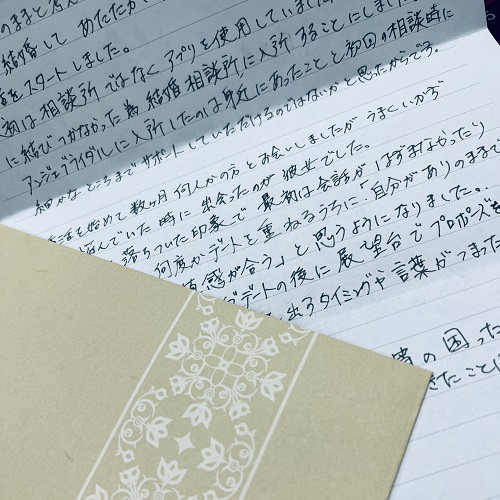 のままと考
結婚して あたたか
をスタートしました。
初は相談所ではなくアプリを使用していました
に結びつかなかった為 結婚相談所に入所することにしました
アンジェブライダルに入所したのは身近にあったことと初回の相談時に
細かなところまでサポートしていただけるのではないかと思ったからです。
を始めて数ヶ月 何人かの方とお会いしましたが うまくいかず
んでいた時に 出会ったのが彼女でした。
落ちついた印象で 最初は会話がはずまなかったり
何度かデートを重ねるうちに「自分がありのままで
感が合う」と思うようになりました。
デートの後に展望台でプロポーズを
出るタイミングや言葉がつまった
の困った
きたことに